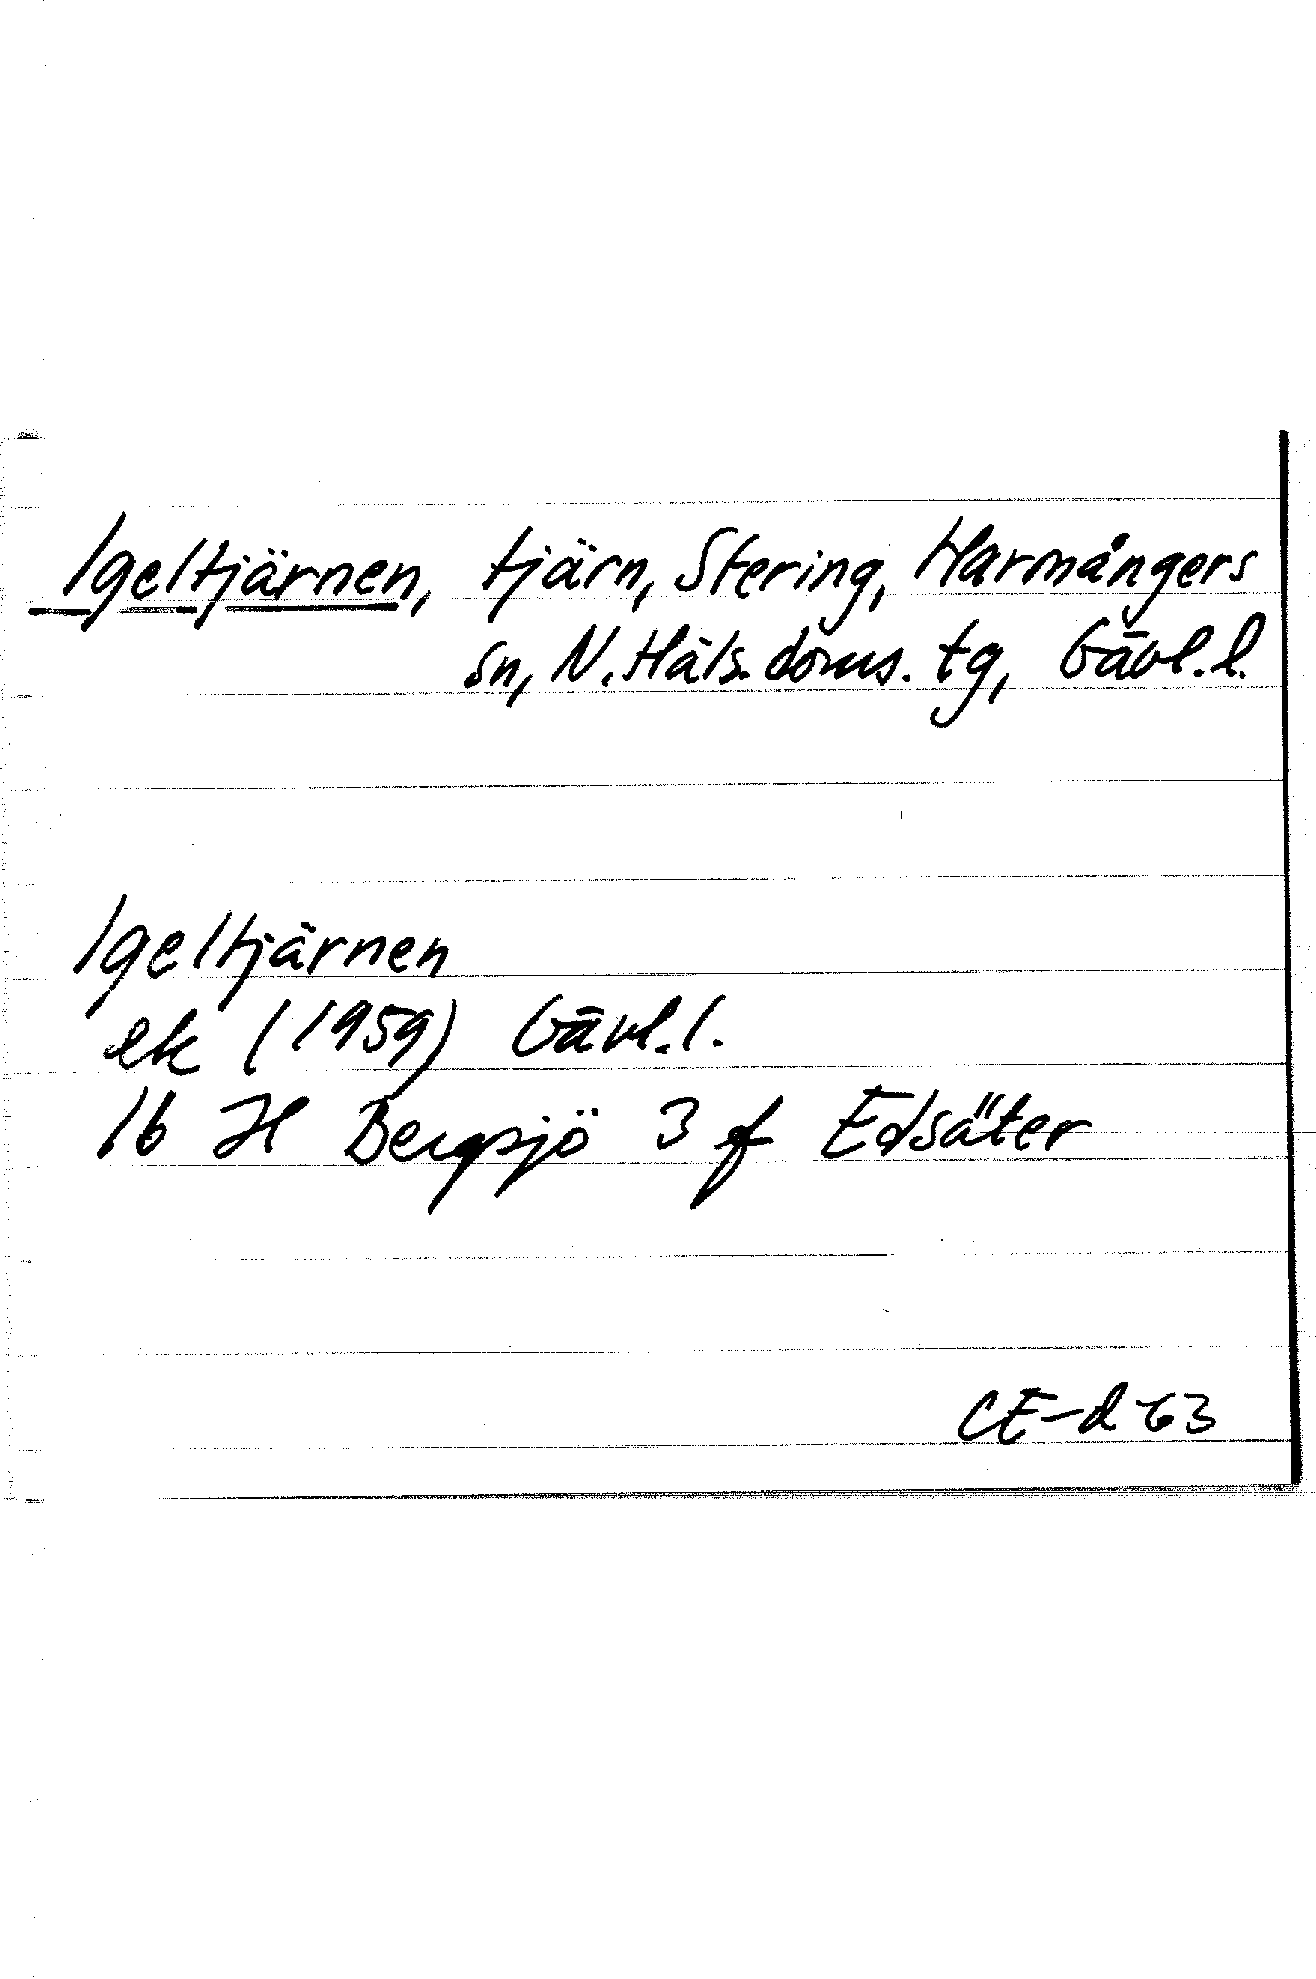 Igeltjärnen, tjärn, Stering, Harmångers
sn, N. Häls. doms. tg, Gävl. l.
Igeltjärnen
ek (1959) Gävl. l.
16 H Bergsjö 3 f Edsäter
CE-d 63